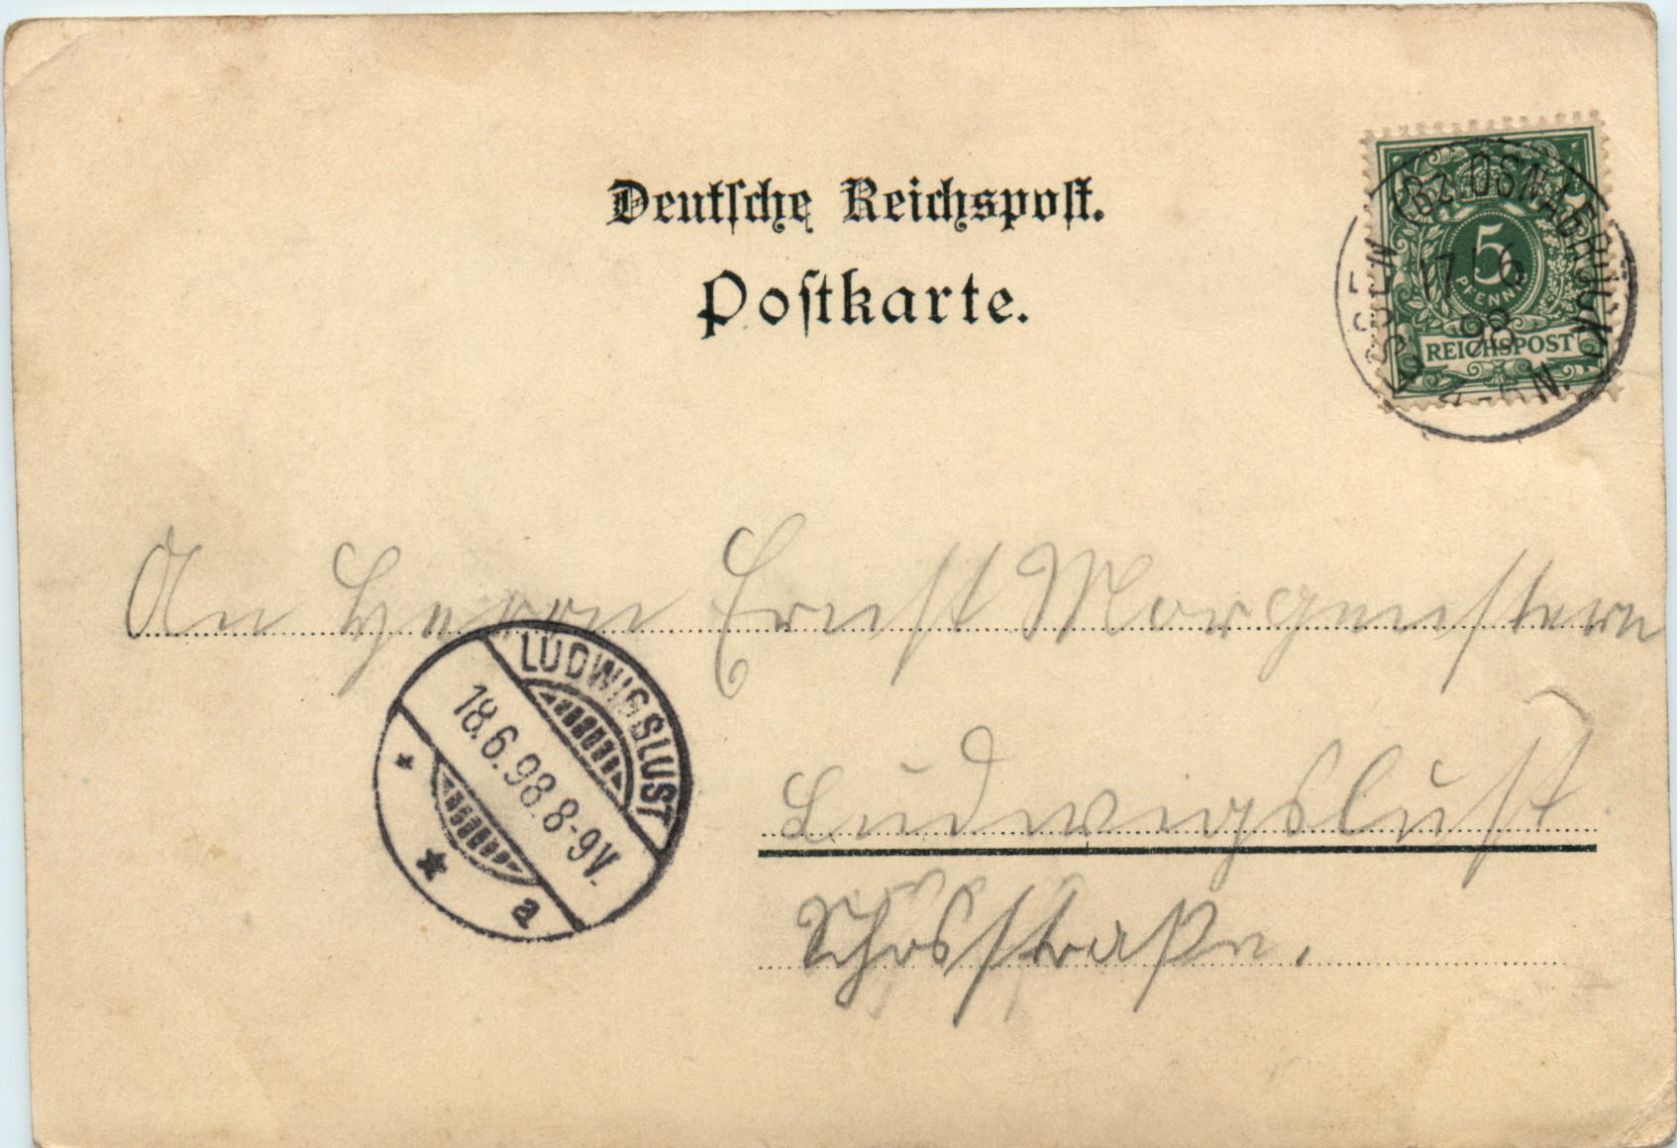 Deutsche Reichspost.
Postkarte.
5
PFENNIG
REICHSPOST
ESSEN (BZ. OSNABRÜCK)
17 6
98
N.
An Herrn Ernst Morgenstern
LUDWIGSLUST
18.6.98.8-9V.
a
Ludwigslust
Schosstraße.